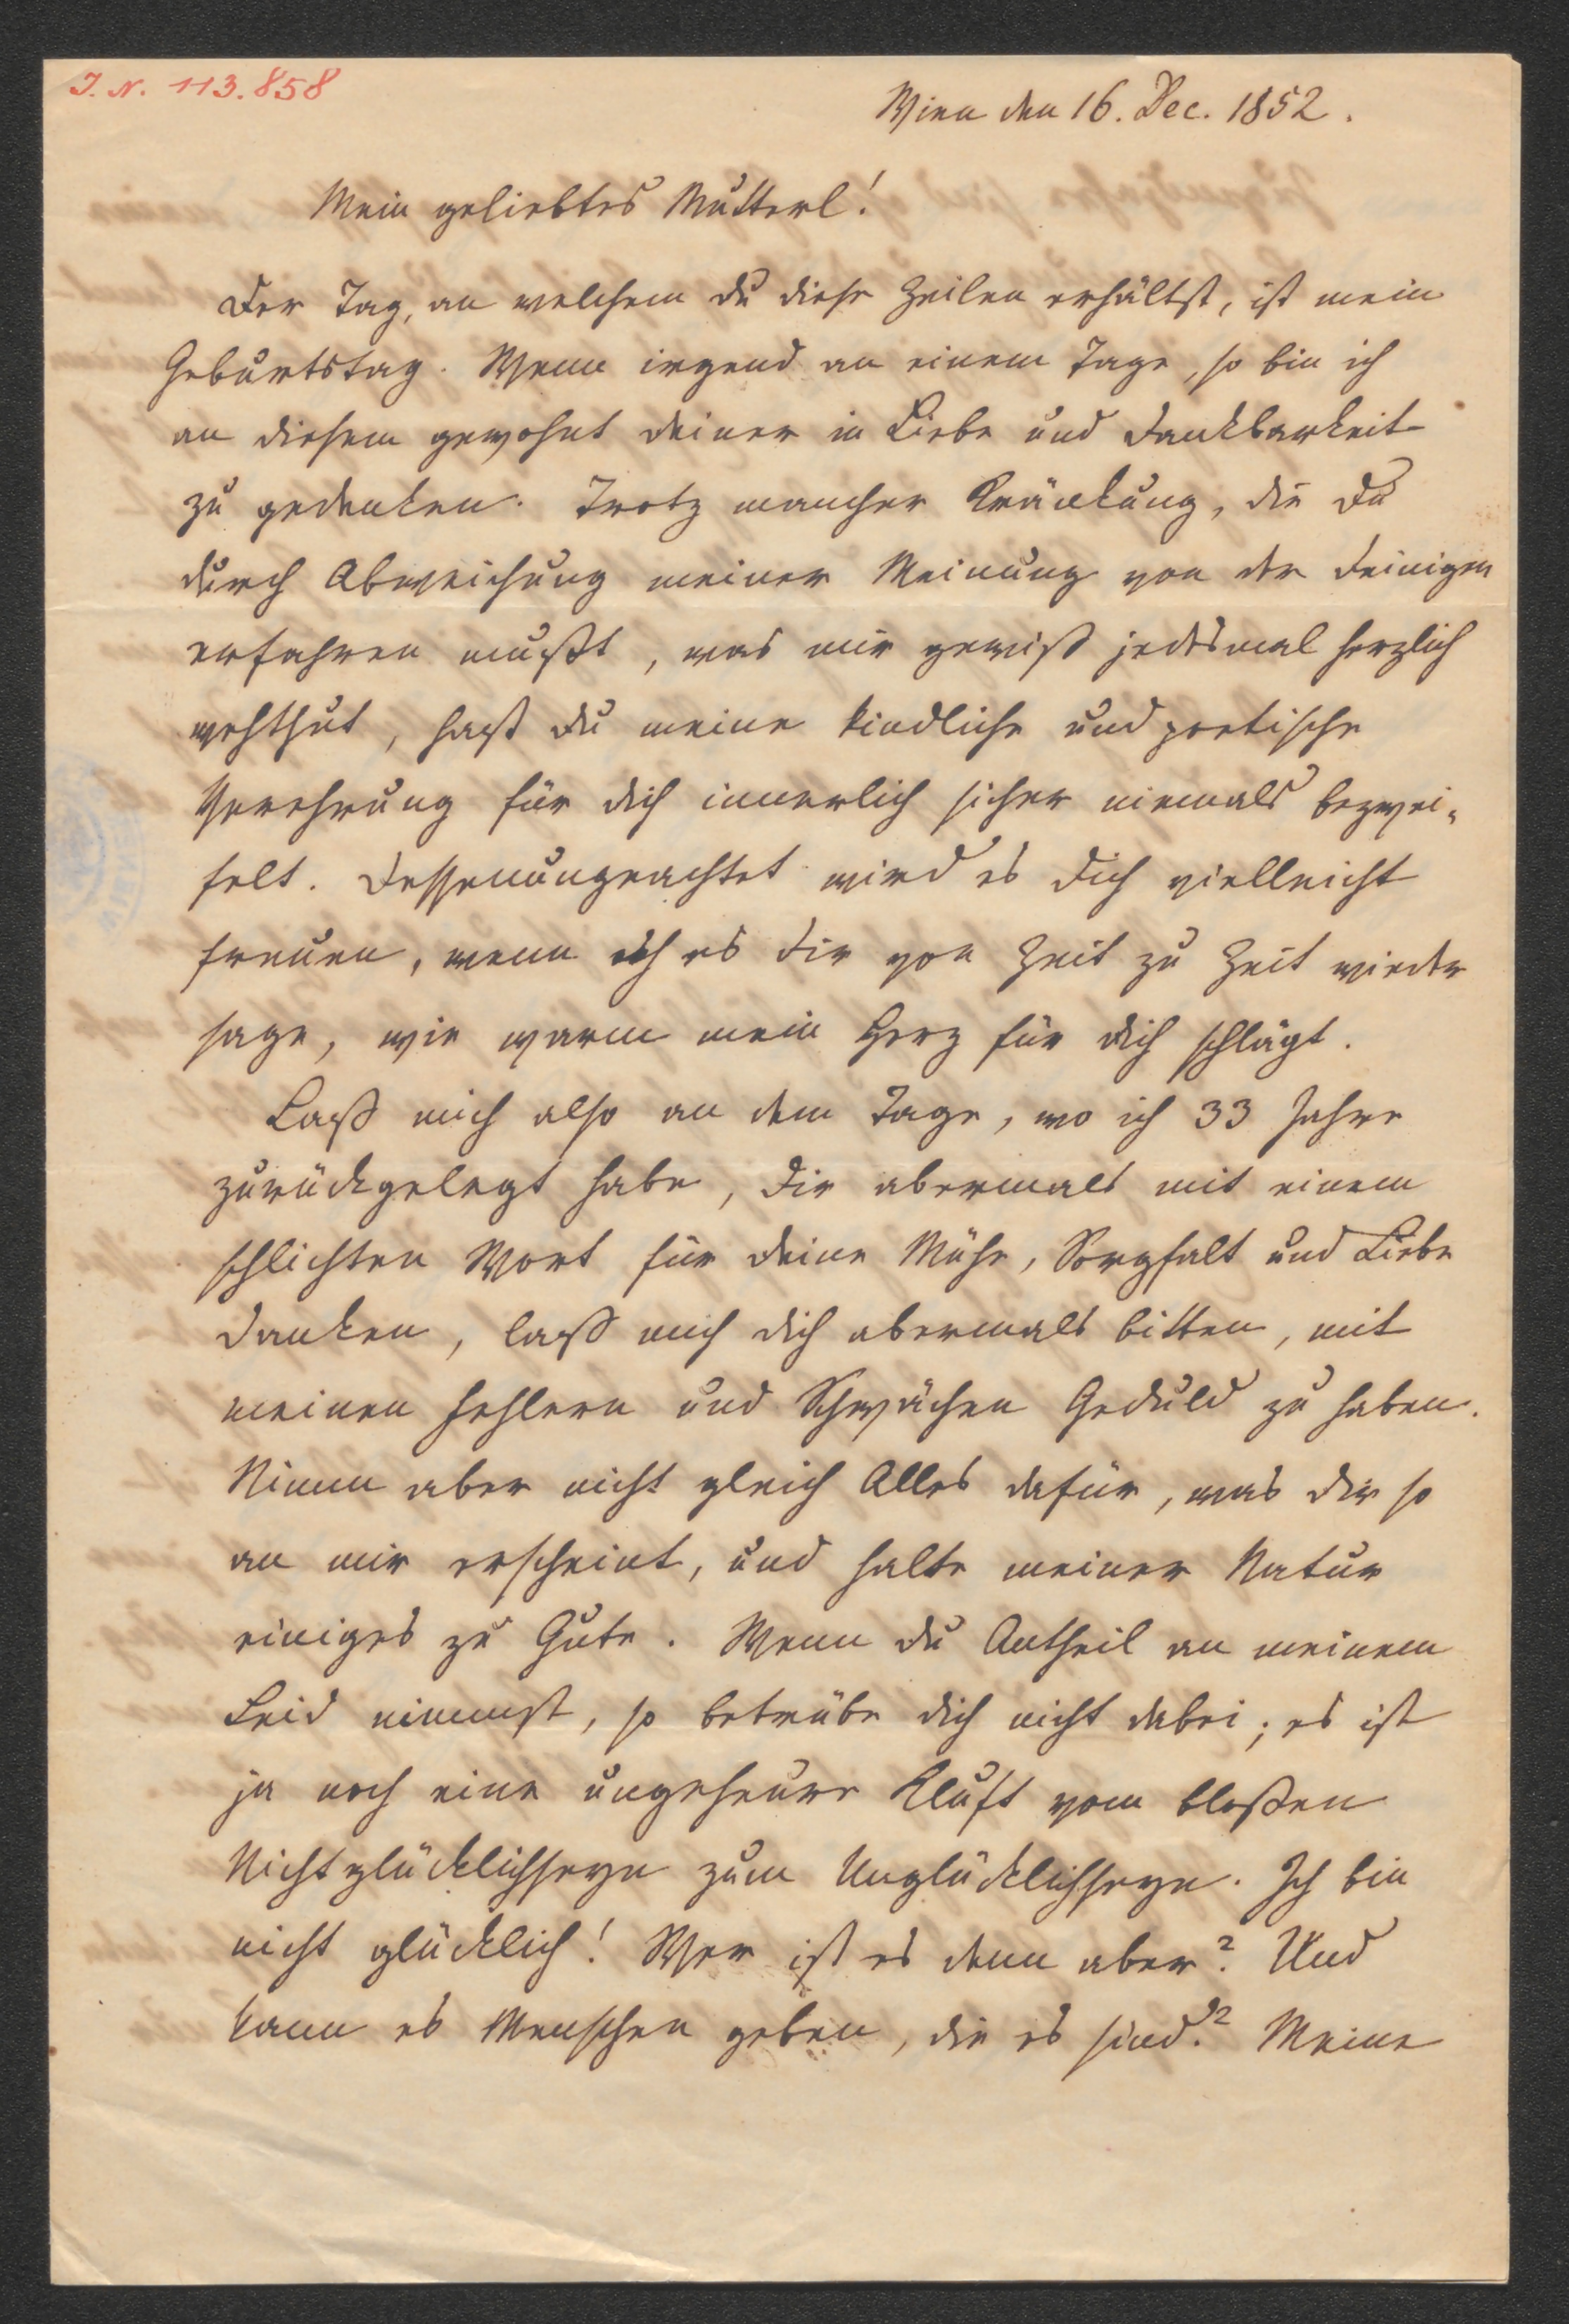 J. N. 113.858
Wien den 16. Dec. 1852.
Mein geliebtes Mutterl!
Der Tag, an welchem du diese Zeilen erhältst, ist mein
Geburtstag. Wenn irgend an einem Tage, so bin ich
an diesem gewohnt deiner in Liebe und Dankbarkeit
zu gedenken. Trotz mancher Kränkung, die Du
durch Abweichung meiner Meinung von der Deinigen
erfahren mußt, was mir gewiß jedesmal herzlich
wehthut, hast du meine kindliche und poetische
Verehrung für dich innerlich sicher niemals bezwei-
felt. Dessenungeachtet wird es dich vielleicht
freuen, wenn ich es dir von Zeit zu Zeit wieder
sage, wie warm mein Herz für dich schlägt.
Laß mich also an dem Tage, wo ich 33 Jahre
zurückgelegt habe, dir abermals mit einem
schlichten Wort für deine Mühe, Sorgfalt und Liebe
danken, laß mich dich abermals bitten, mit
meinen Fehlern und Schwächen Geduld zu haben.
Nimm aber nicht gleich Alles dafür, was dir so
an mir erscheint, und halte meiner Natur
einiges zu Gute. Wenn du Antheil an meinem
Leid nimmst, so betrübe dich nicht dabei; es ist
ja noch eine ungeheure Kluft vom bloßen
Nichtglücklichseyn zum Unglücklichseyn. Ich bin
nicht glücklich! Wer ist es denn aber? Und
kann es Menschen geben, die es sind? Meine